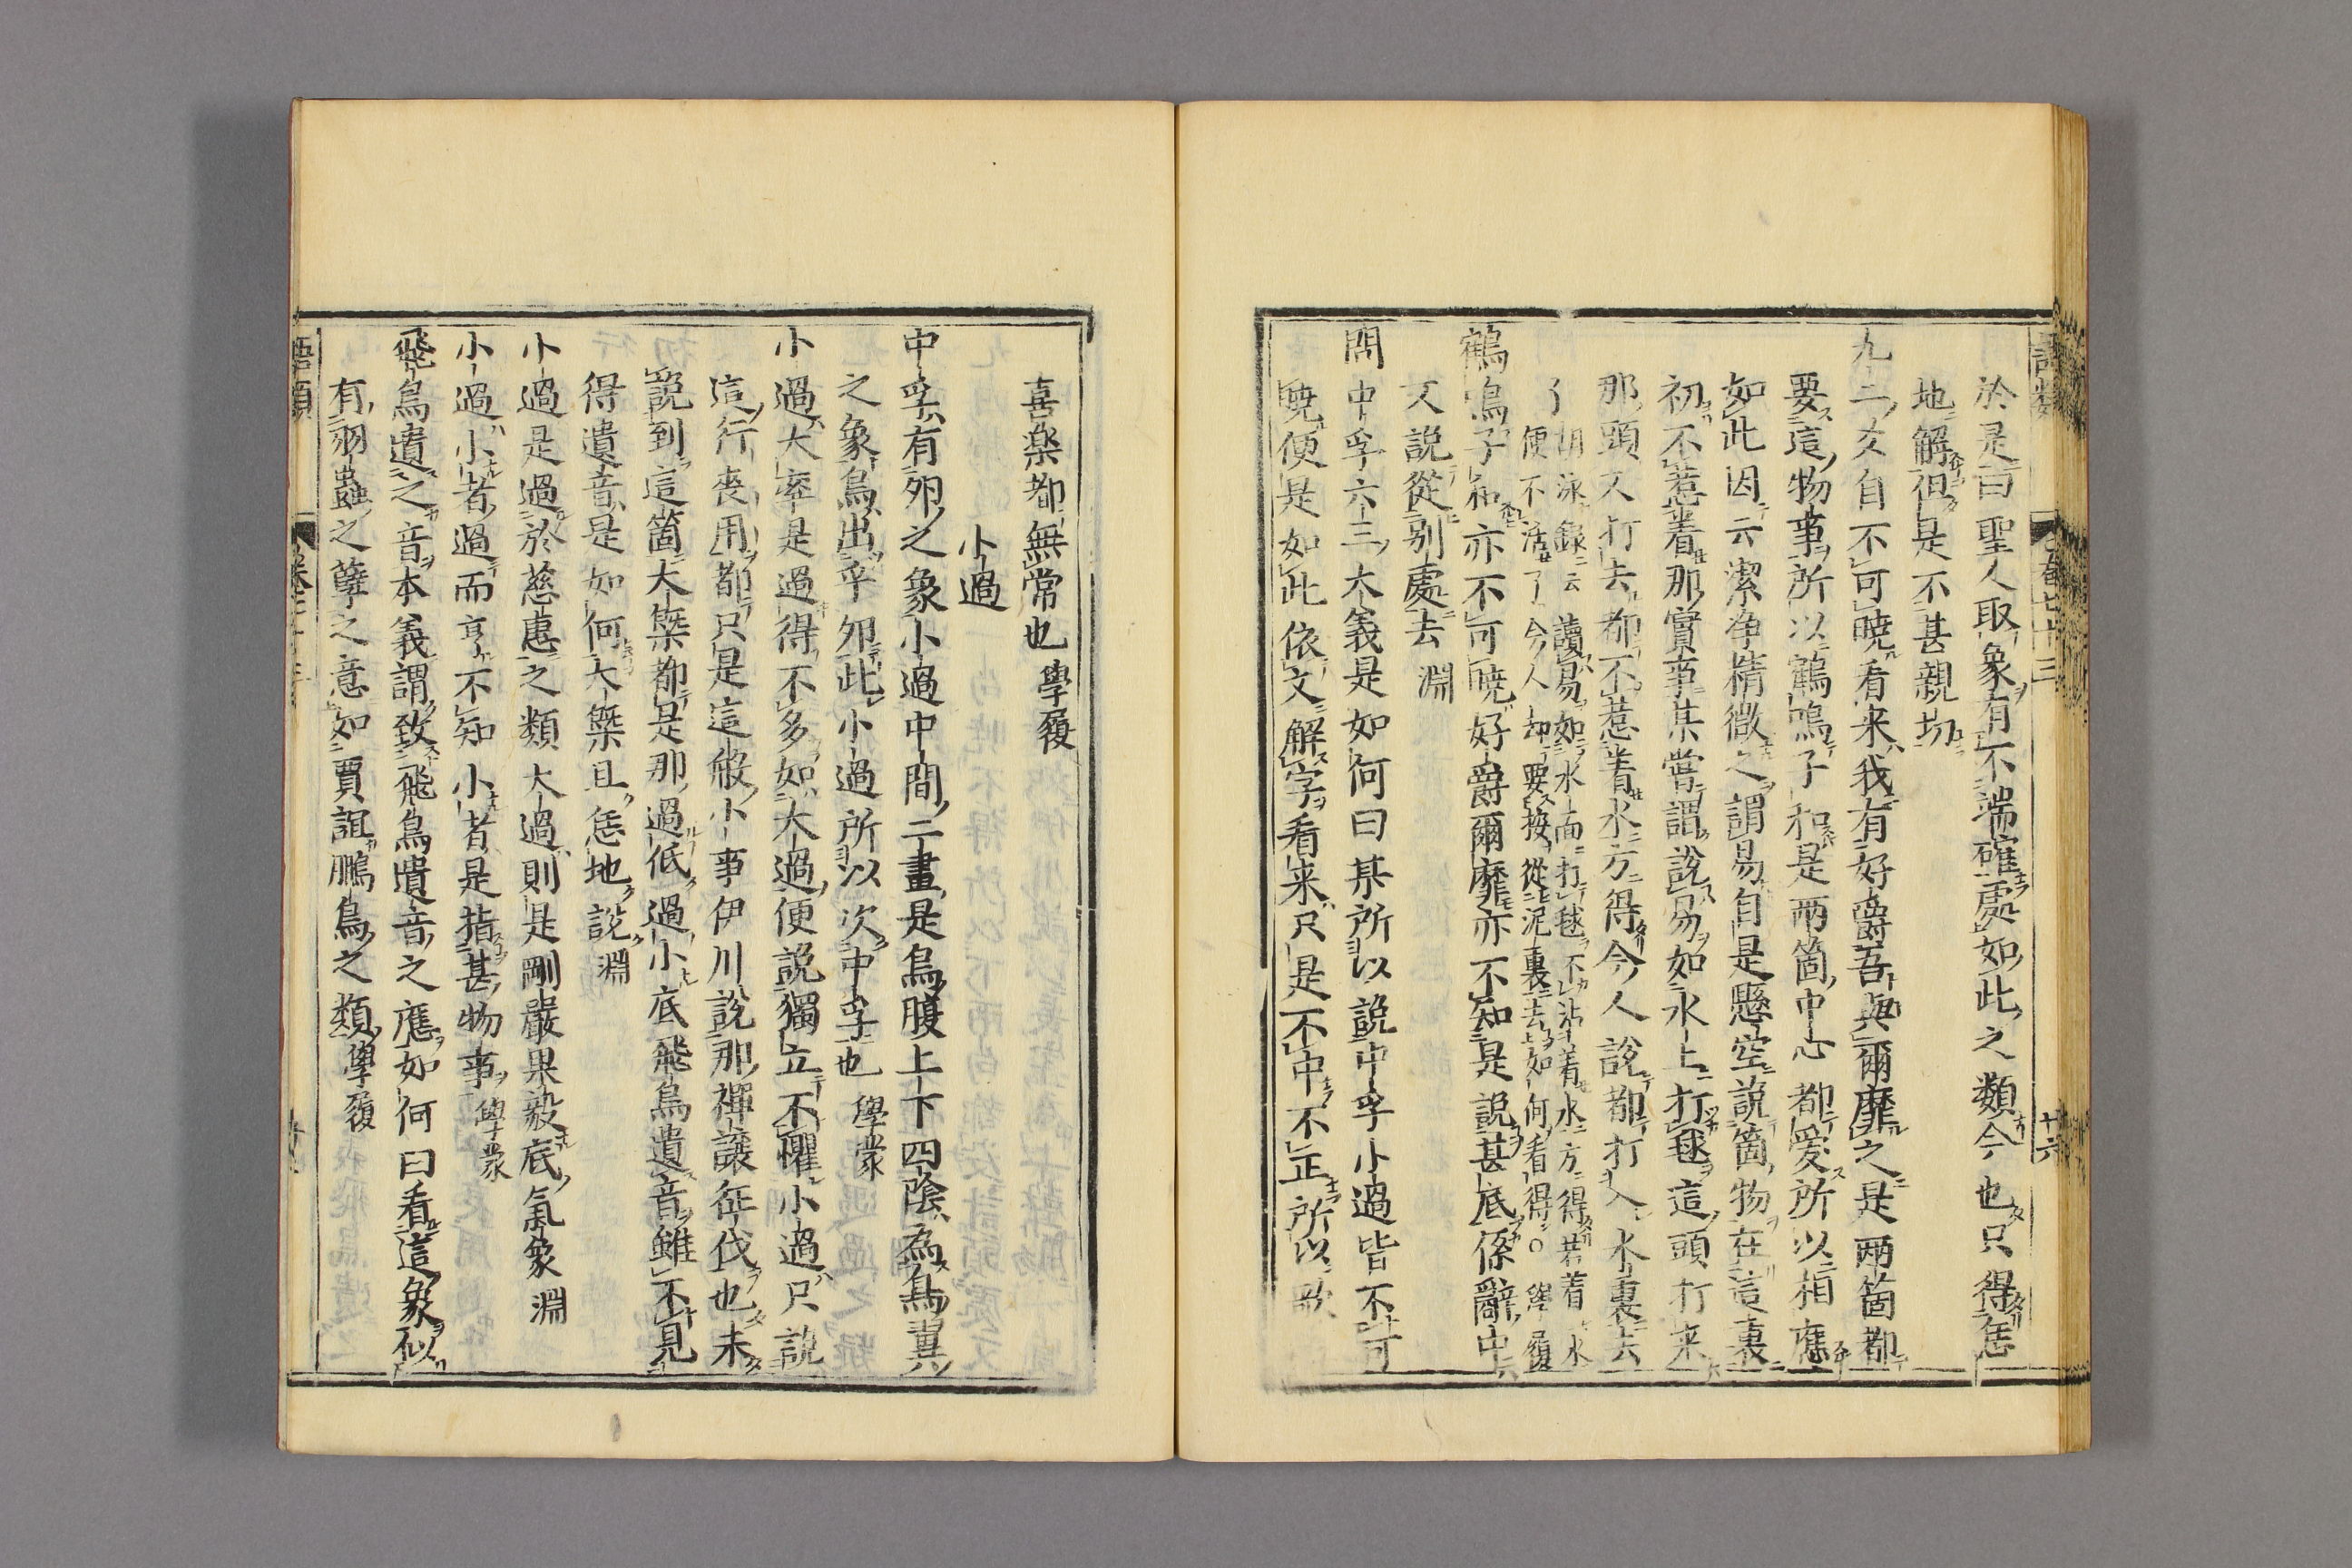 於是曰聖人取象有不端確處如此之類今也只得恁
地解但是不甚親切
九二爻自不可曉看来我有好爵吾與爾靡之是兩箇都
要這物事所以鶴鳴子和是兩箇中心都愛所以相應
如此因云潔净精微之謂易自是懸空說箇物在這裏
初不惹着那實事某嘗謂說易如水上打毬這頭打来
那頭又打去都不惹着水方得今人說都打入水裏去
了
胡泳録云讀易如水面打毬不沾着水方得若着水
便不活了今人却要按從泥裏去如何看得○學履
鶴鳴子和亦不可曉好爵爾靡亦不知是說甚底係辭中
又説從别處去 淵
問中孚六三大義是如何曰某所以說中孚小過皆不可
曉便是如此依文解字看来只是不中不正所以歌
喜楽都無常也 學履
小過
中孚有夘之象小過中間二畫是鳥腹上下四陰為鳥翼
之象鳥出乎夘此小過所以次中孚也 學蒙
小過大率是過得不多如大過便說獨立不懼小過只說
這行喪用都只是這般小事伊川說那禪讓征伐也未
說到這箇大槩都是那過低過小底飛鳥遺音雖不見
得遺音是如何大槩且恁地說 淵
小過是過於慈惠之類大過則是剛嚴果毅底氣象 淵
小過小者過而亨不知小者是指甚物事 學蒙
飛鳥遺之音本義謂致飛鳥遺音之應如何曰看這象似
有羽蟲之孽之意如賈誼鵩鳥之類 學履